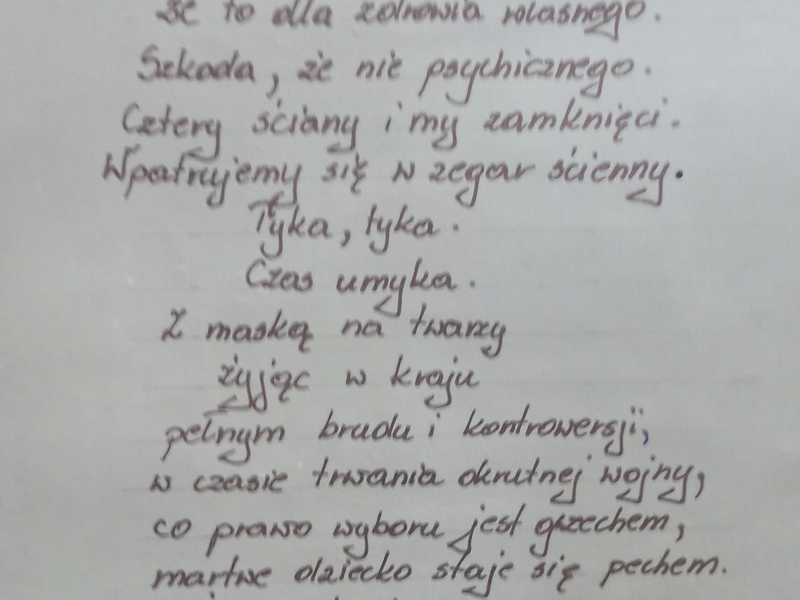 że to dla zdrowia własnego.
Szkoda, że nie psychicznego.
Cztery ściany i my zamknięci.
Wpatrujemy się w zegar ścienny.
Tyka, tyka.
Czas umyka.
Z maską na twarzy
żyjąc w kraju
pełnym brudu i kontrowersji,
w czasie trwania okrutnej wojny,
co prawo wyboru jest grzechem,
martwe dziecko staje się pechem.